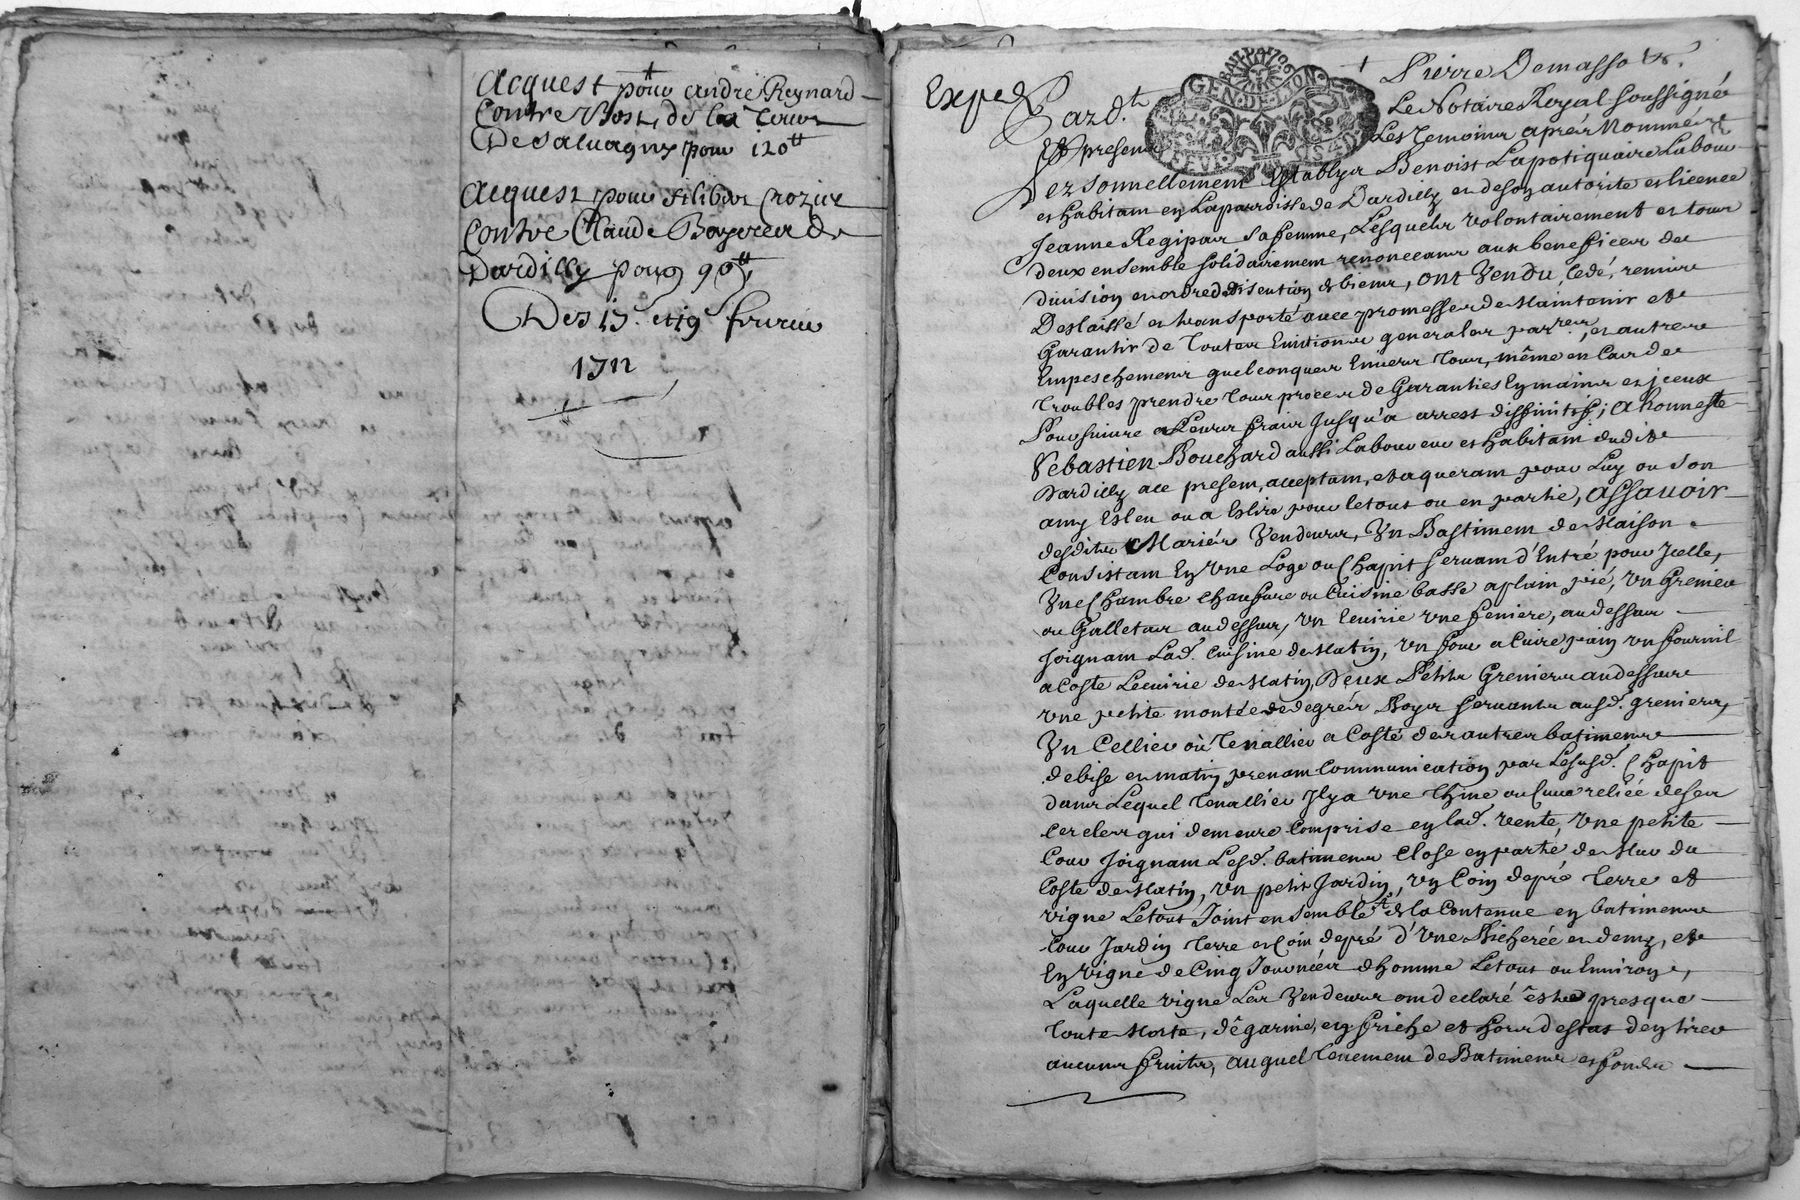 Acquest pour andré Reynard
Contre Benoist de la Tour
De Salvagny pour 120ᵗᵗ
Acquest pour filibert Crozier
Contre Claude Boyer de
Dardilly pour 90ᵗᵗ
Des 17. et 19 fevrier
1711
Exped
Pard.ᵗ
GEN. DE LYON
Le Notaire Royal soussigné
Les Temoins aprés Nommés
présens
Personnellement Establys Benoist Lapotiquaire Labour
et habitant en La parroisse de Dardilly et de son autorite et licence
Jeanne Regipas sa femme, Lesquels volontairement et tous
deux ensemble solidairement renonceant aux beneffices de
division ordre de discution de biens, ont Vendu, cedé, remis
Deslaissé et transporté avec promesses de Maintenir et
Garantir de toutes Evictions generales parres, et autres
Empeschemens quelconques Envers tous, même en cas de
Troubles prendre tour procer de Garanties Eymains et jceux
Poursuivre a Leurs frais Jusqu'a arrest diffinitif; a honneste
Sebastien Bouchard aussi Laboureur et habitant dudit
Dardilly ace present, acceptant, et aquerant pour Luy ou son
amy Esleu ou a Eslire pour le tout ou en partie, assavoir
desdits Mariés Vendeurs, Un Bastiment de Maison
Consistant En Une Loge ou Chapit servant d'Entré pour Jcelle,
Une Chambre chaufure ou Cuisine basse a plain pié, Un Grenier
ou Galletas au dessus, un Ecuirie une feniere, au dessus
Joignant Lad. cuisine de Matin, un four a Cuire pain un fournil
a Coste Lecuirie de Matin, Deux Petits Greniers au dessus
une petite montée de degrés Noyer servants ausd. greniers,
Un Cellier où Tenallier a Costé des autres batimens
de bise et matin prenant Communication par Lesusd. Chapit
dans Lequel Tenallier Jl y a une Thine ou Cuve reliée de ses
Cercles qui demeure Comprise en lad. vente, une petite
Cour Joignant Lesd. batimens Close en partie de Mur du
Coste de Matin, un petit Jardin, un Coin de pré Terre et
vigne Le tout Joint ensemble de la Contenue en batimens
Cour Jardin Terre et Coin de pré d'Une Bicherée et demy, et
En vigne de Cinq Journées d'homme Le tout ou Environ,
Laquelle vigne Les Vendeurs ont declaré être presque
toute Morte, dégarnie, en friche et hors d'estat d'en tirer
aucuns fruits, auquel Tenement de Batimens et fonds